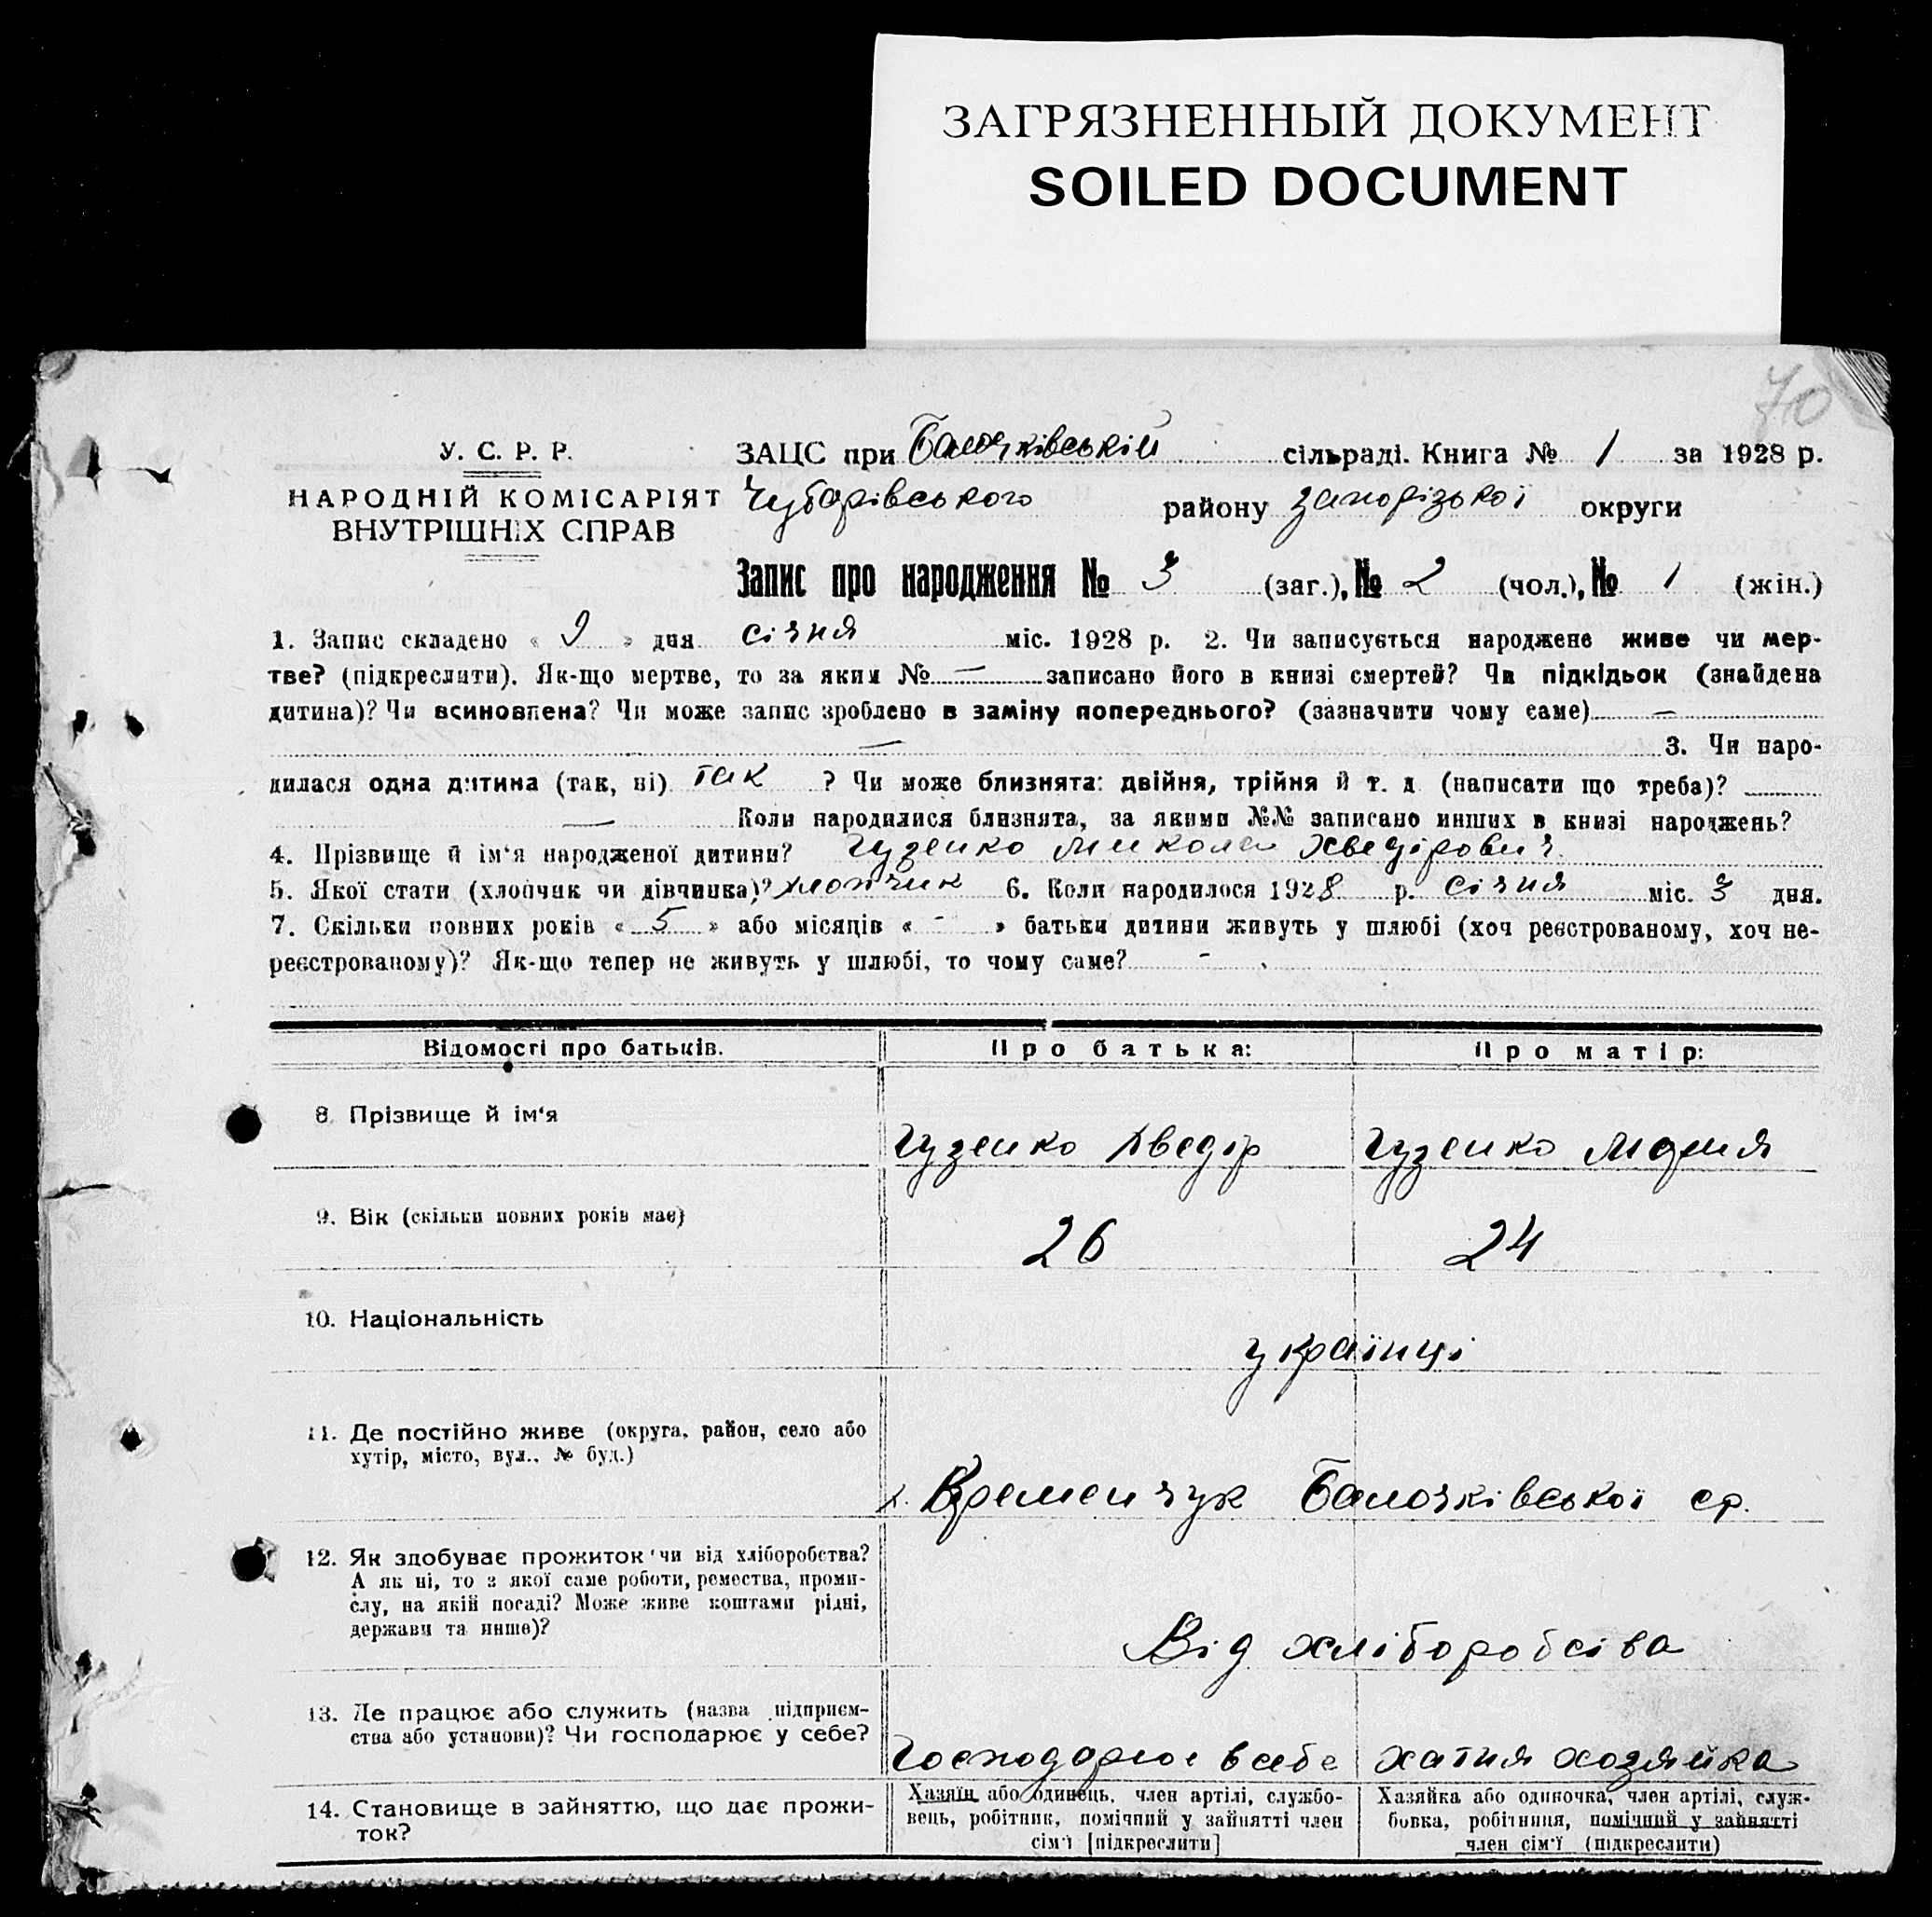 ЗАГРЯЗНЕННЫЙ ДОКУМЕНТ
SOILED DOCUMENT
70
У. С. Р. Р.
НАРОДНІЙ КОМІСАРІЯТ
ВНУТРІШНІХ СПРАВ
ЗАЦС при Балочківській сільраді. Книга № 1 за 1928 р.
Чубарівського району Запорізької округи
Запис про народження № 3 (заг.), № 2 (чол.), № 1 (жін.)
1. Запис складено « 9 » дня січня міс. 1928 р. 2. Чи записується народжене живе чи мер-
тве? (підкреслити). Як-що мертве, то за яким № — записано його в книзі смертей? Чи підкідьок (знайдена
дитина)? Чи всиновлена? Чи може запис зроблено в заміну попереднього? (зазначити чому саме) —
— 3. Чи наро-
дилася одна дитина (так, ні) так ? Чи може близнята: двійня, трійня й т. д. (написати що треба)?
— Коли народилися близнята, за якими №№ записано инших в книзі народжень?
4. Прізвище й ім'я народженої дитини? Гузенко Микола Хведірович
5. Якої стати (хлопчик чи дівчинка)? хлопчик 6. Коли народилося 1928 р. січня міс. 3 дня.
7. Скільки повних років « 5 » або місяців « - » батьки дитини живуть у шлюбі (хоч реєстрованому, хоч не-
реєстрованому)? Як-що тепер не живуть у шлюбі, то чому саме? -
Відомості про батьків. Про батька: Про матір:
8. Прізвище й ім'я
Гузенко Хведір Гузенко Мария
9. Вік (скільки повних років має)
26 24
10. Національність
українці
11. Де постійно живе (округа, район, село або
хутір, місто, вул., № буд.)
х. Кременчук Балочківської ср.
12. Як здобуває прожиток чи від хліборобства?
А як ні, то з якої саме роботи, ремества, проми-
слу, на якій посаді? Може живе коштами рідні,
держави та инше)?
Від хліборобства
13. Де працює або служить (назва підприєм-
ства або установи)? Чи господарює у себе?
Господарює в себе хатня хозяйка
14. Становище в зайняттю, що дає прожи-
ток?
Хазяїн або одинець, член артілі, службо-
вець, робітник, помічний у зайнятті член
сім'ї [підкреслити]
Хазяйка або одиночка, член артілі, служ-
бовка, робітниця, помічний у зайнятті
член сім'ї (підкреслити)